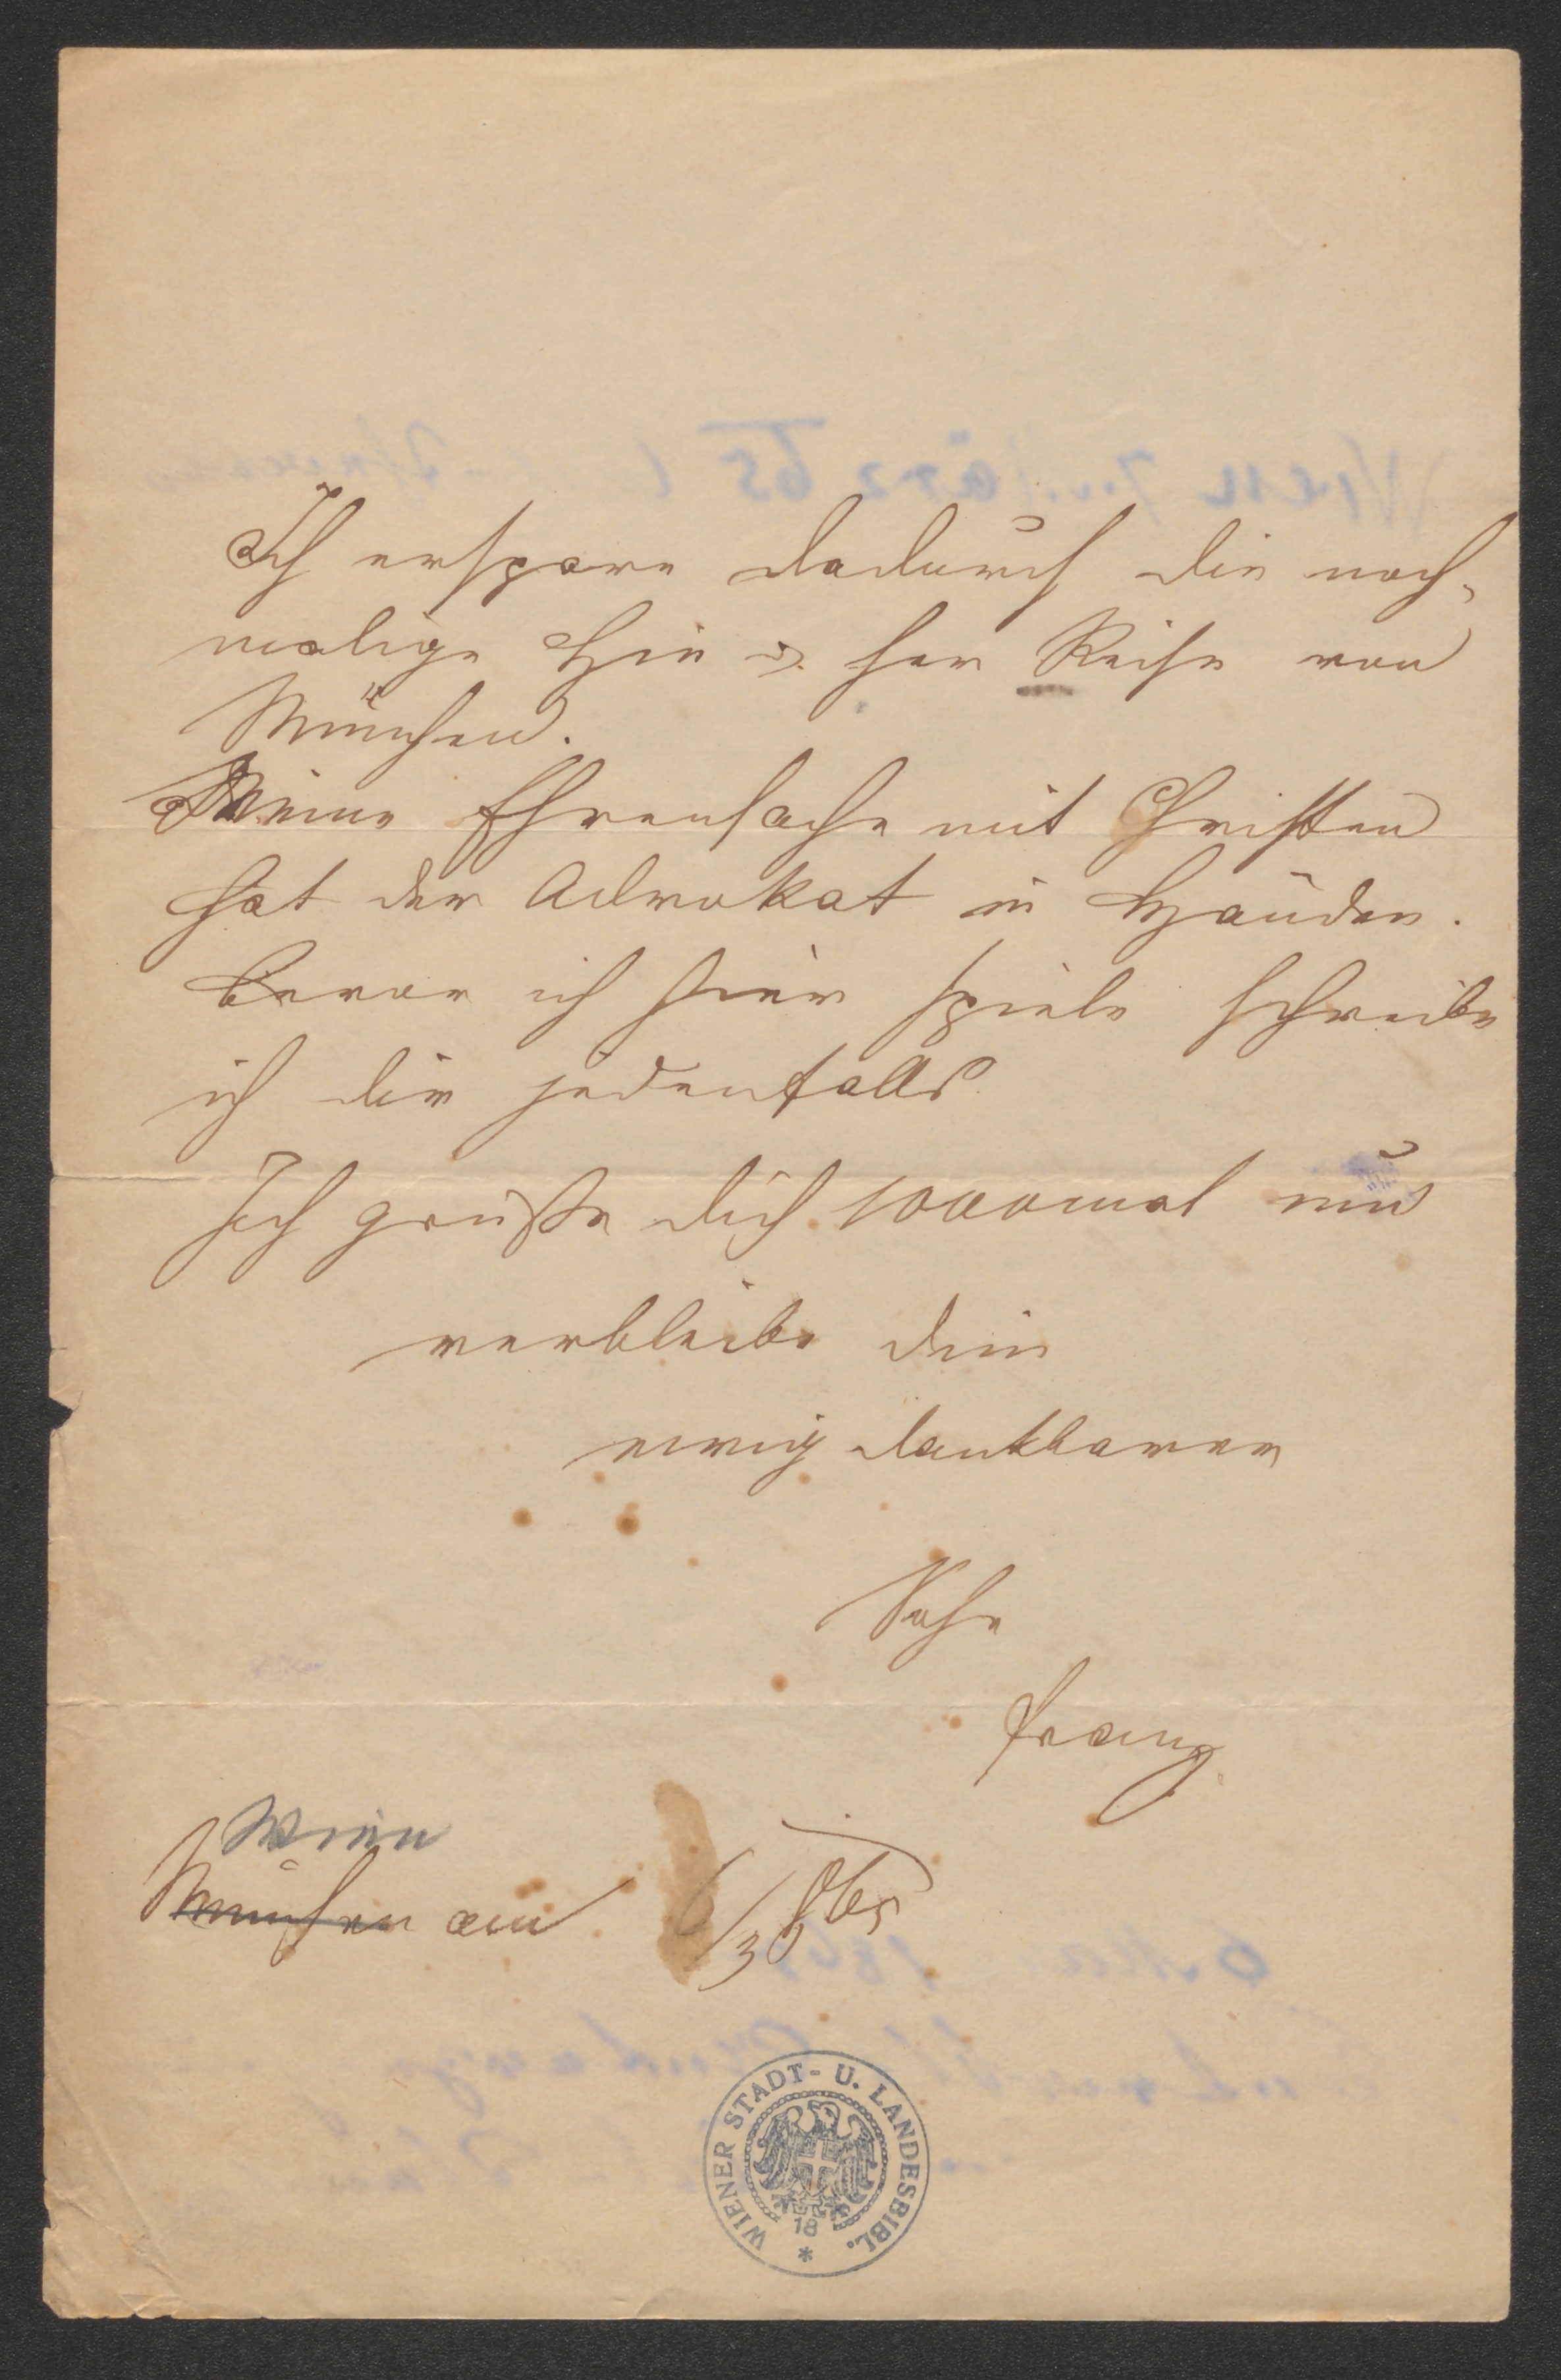 Ich erspare dadurch die noch-
malige Hin u. her Reise von
München.
Meine Ehrensache mit Christen
hat der Advokat in Händen.
Bevor ich hier spiele schreibe
ich dir jedenfalls
Ich grüße dich 1000mal und
verbleibe dein
ewig dankbarer
Sohn
Franz
Wien
München am 6/3 865
WIENER STADT- U. LANDESBIBL.
18